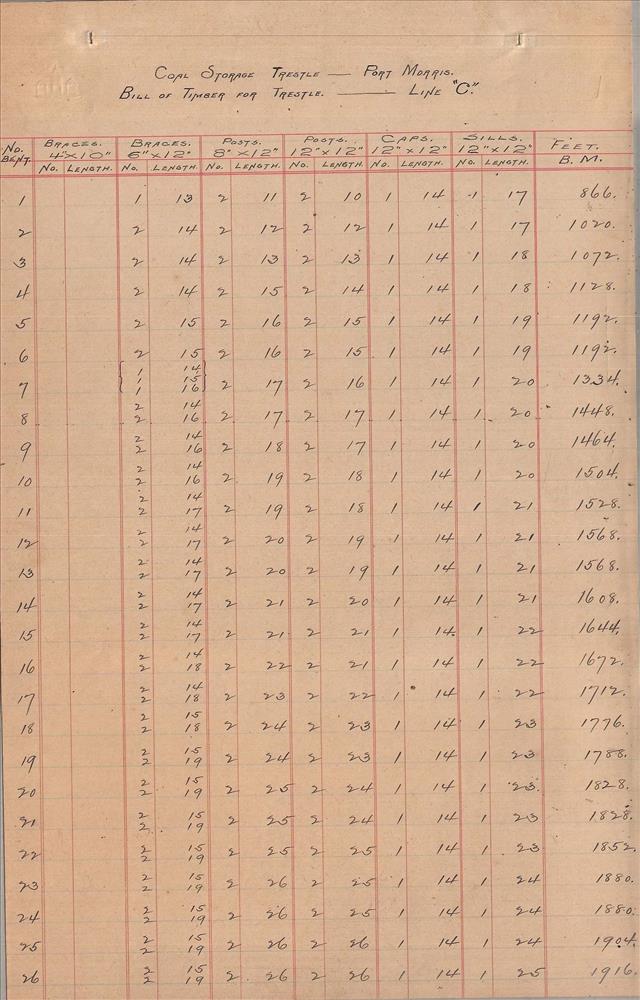 COAL STORAGE TRESTLE — PORT MORRIS.
BILL OF TIMBER FOR TRESTLE. — LINE "C".
No. BENT. BRACES. 4"x10" BRACES. 6"x12" POSTS. 8"x12" POSTS. 12"x12" CAPS. 12"x12" SILLS. 12"x12" FEET. B.M.
No. LENGTH. No. LENGTH. No. LENGTH. No. LENGTH. No. LENGTH. No. LENGTH.
1 1 13 2 11 2 10 1 14 1 17 866.
2 2 14 2 12 2 12 1 14 1 17 1020.
3 2 14 2 13 2 13 1 14 1 18 1072.
4 2 14 2 15 2 14 1 14 1 18 1128.
5 2 15 2 16 2 15 1 14 1 19 1192.
6 2 15 2 16 2 15 1 14 1 19 1192.
1 14
1 15
7 1 16 2 17 2 16 1 14 1 20 1334.
2 14
8 2 16 2 17 2 17 1 14 1 20 1448.
2 14
9 2 16 2 18 2 17 1 14 1 20 1464.
2 14
10 2 16 2 19 2 18 1 14 1 20 1504.
2 14
11 2 17 2 19 2 18 1 14 1 21 1528.
2 14
12 2 17 2 20 2 19 1 14 1 21 1568.
2 14
13 2 17 2 20 2 19 1 14 1 21 1568.
2 14
14 2 17 2 21 2 20 1 14 1 21 1608.
2 14
15 2 17 2 21 2 21 1 14 1 22 1644.
2 14
16 2 18 2 22 2 21 1 14 1 22 1672.
2 14
17 2 18 2 23 2 22 1 14 1 22 1712.
2 15
18 2 18 2 24 2 23 1 14 1 23 1776.
2 15
19 2 19 2 24 2 23 1 14 1 23 1788.
2 15
20 2 19 2 25 2 24 1 14 1 23. 1828.
2 15
21 2 19 2 25 2 24 1 14 1 23 1828.
2 15
22 2 19 2 25 2 25 1 14 1 23 1852.
2 15
23 2 19 2 26 2 25 1 14 1 24 1880.
2 15
24 2 19 2 26 2 25 1 14 1 24 1880.
2 15
25 2 19 2 26 2 26 1 14 1 24 1904.
2 15
26 2 19 2 26 2 26 1 14 1 25 1916.